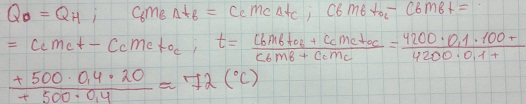 Qо = Qн ; CвmвΔtв = CcmcΔtc ; Cвmвtов - Cвmвt =
= Ccmct - Ccmctoc ; t = (Cвmвtов + Ccmctoc) / (Cвmв + Ccmc) = (4200 · 0,1 · 100 +) / (4200 · 0,1 +)
(+ 500 · 0,4 · 20) / (+ 500 · 0,4) ≈ 72 (°C)